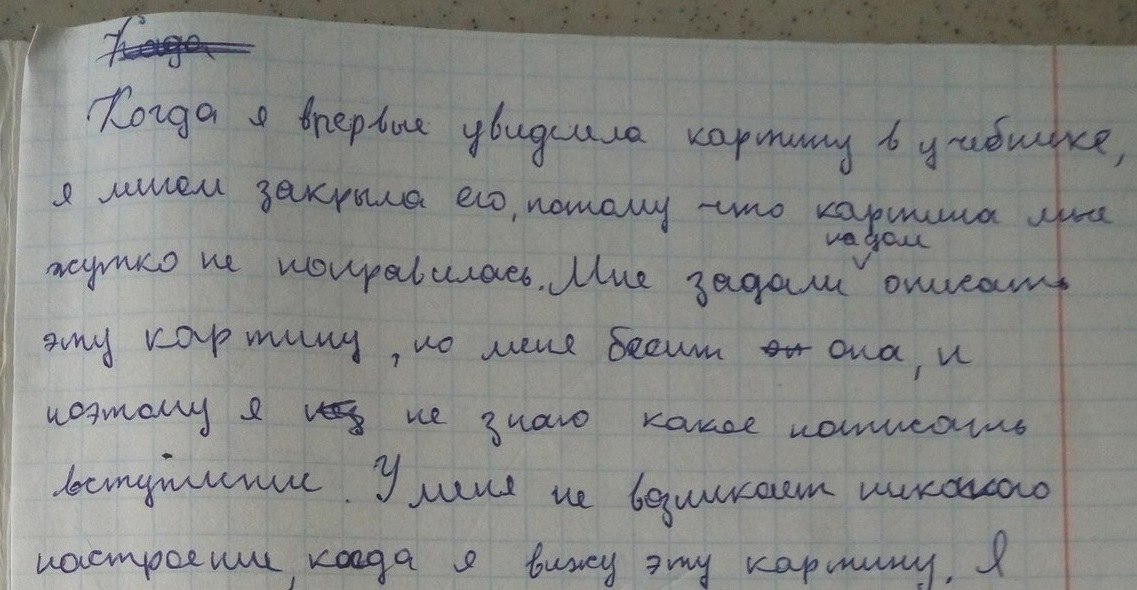 Када
Когда я впервые увидела картину в учебнике,
я мигом закрыла его, потому что картина мне
на дом
жутко не понравилась. Мне задали описать
эту картину, но меня бесит он она, и
поэтому я не знаю какое написать
вступление. У меня не возникает никакого
настроение, когда я вижу эту картину. Я